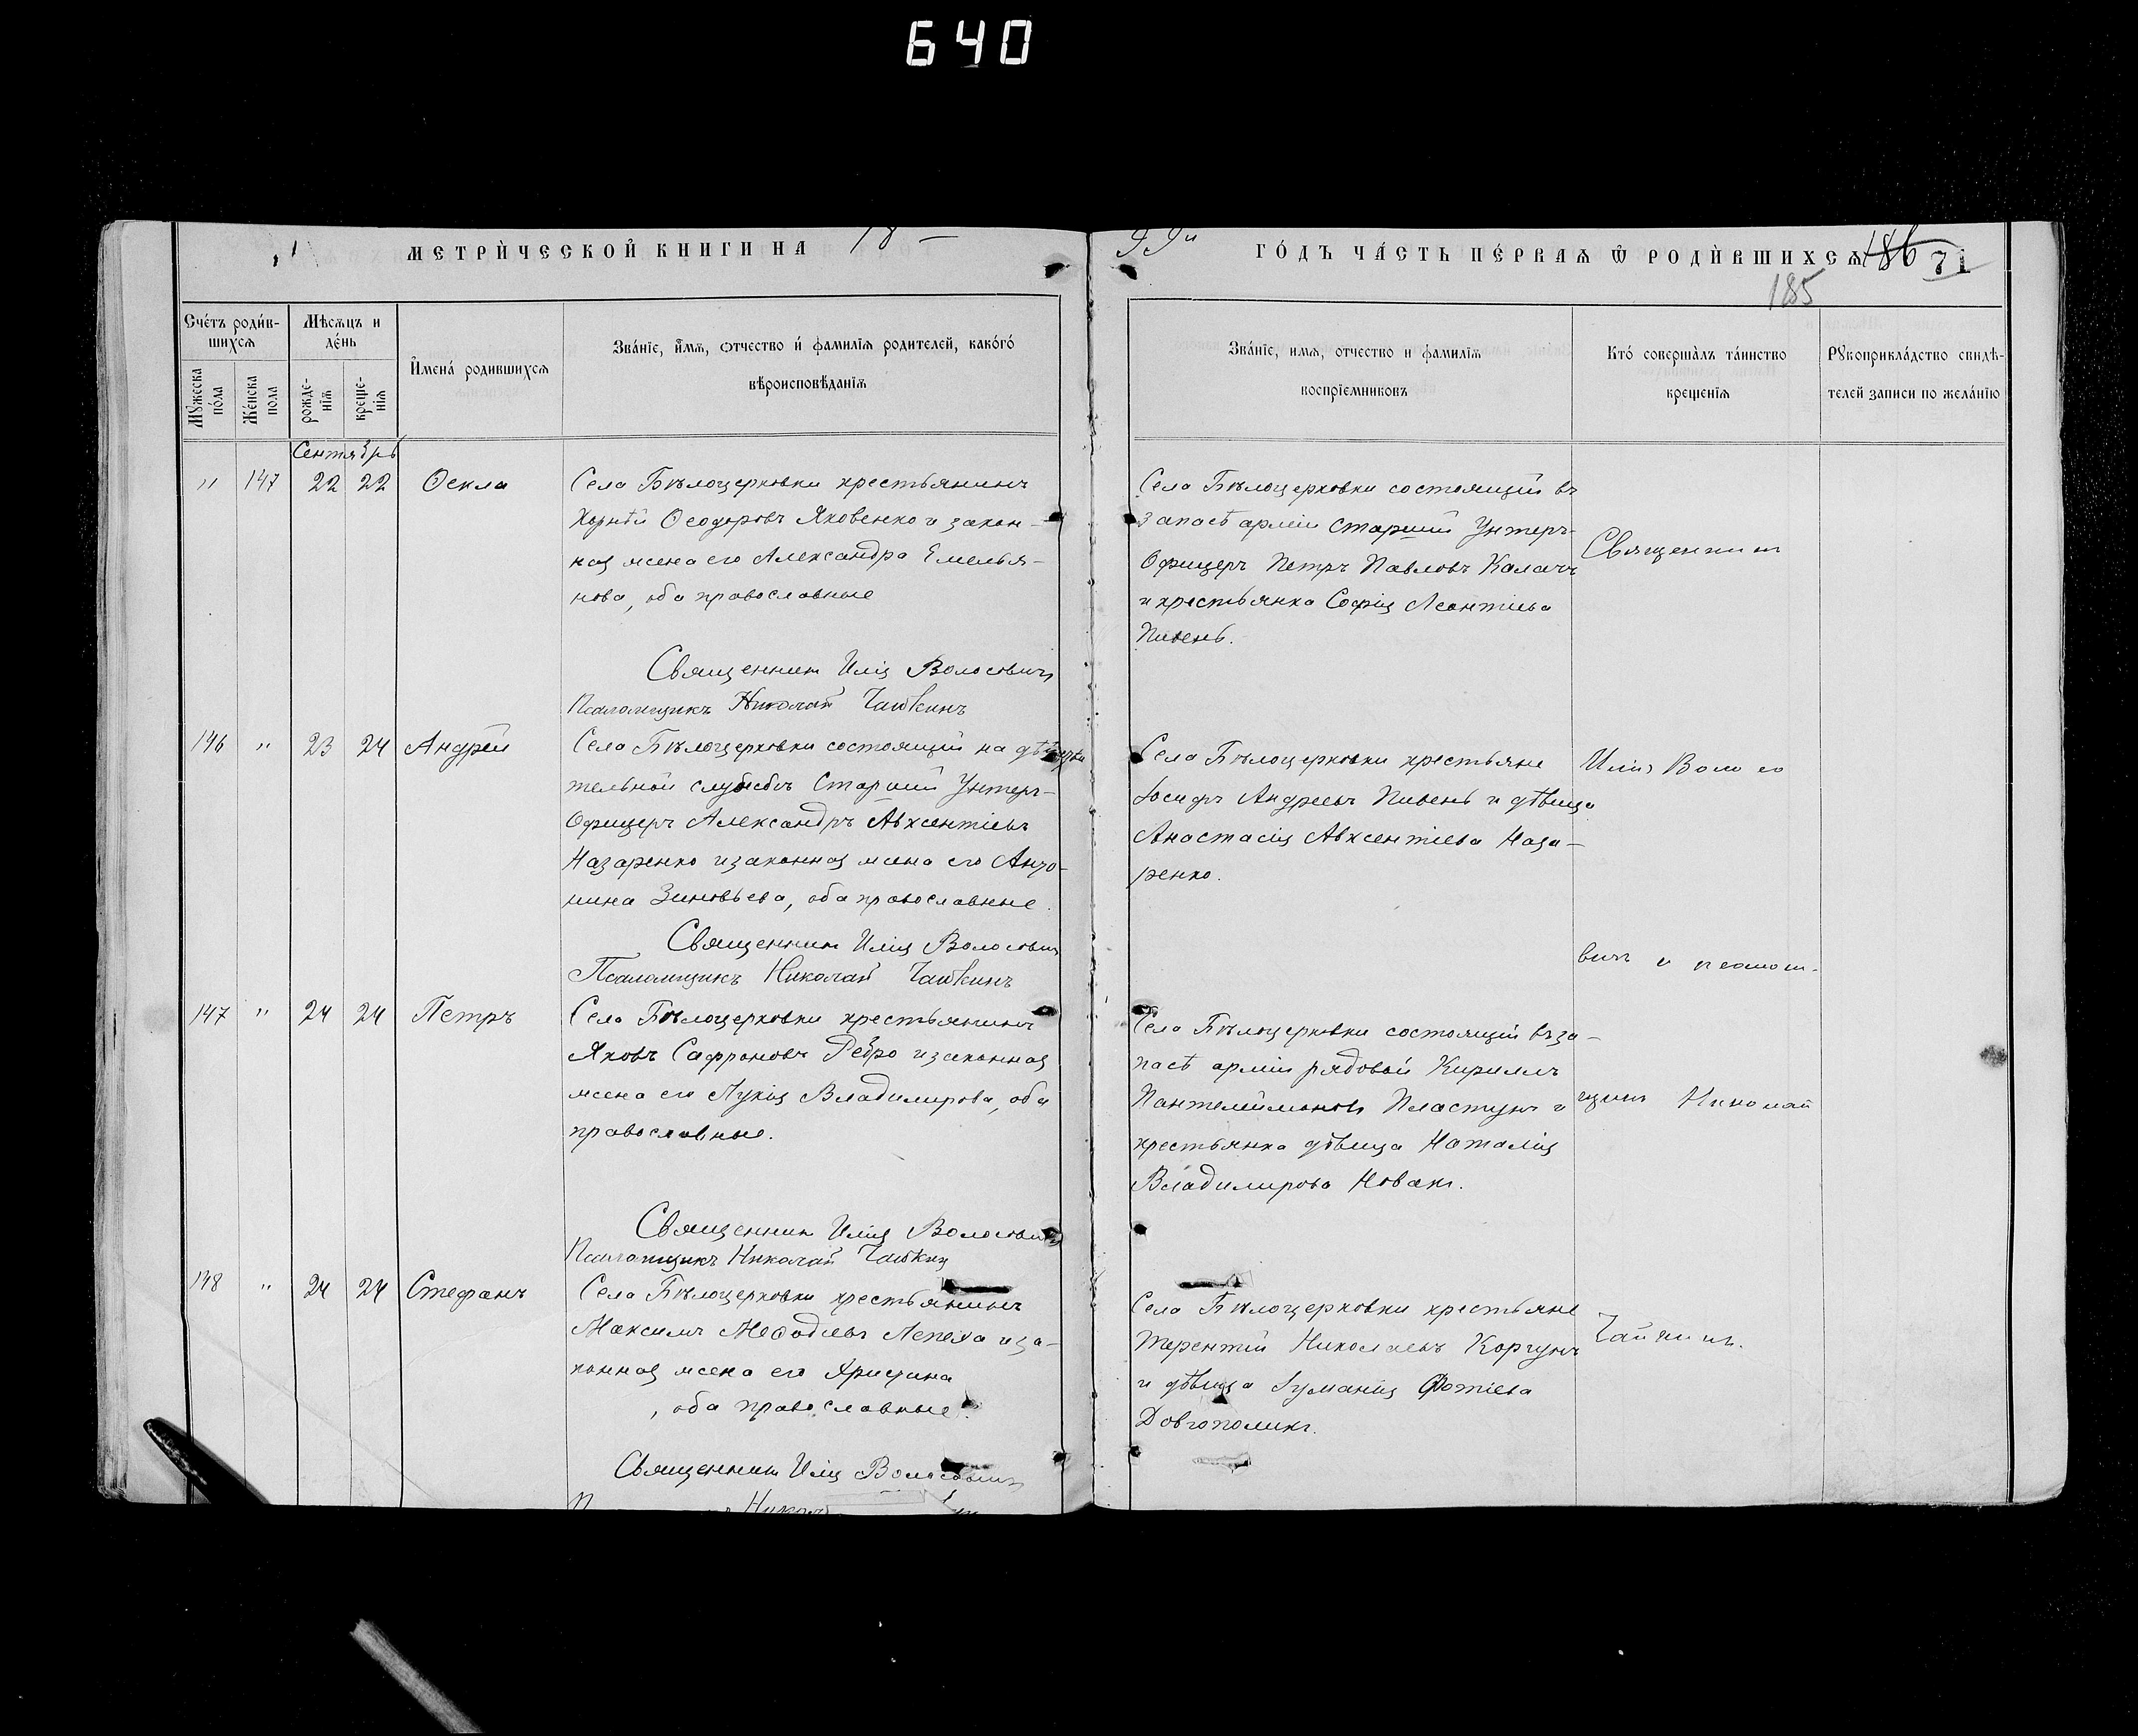 640
МЕТРИ́ЧЕСКОЙ КНИГИ НА 18
99й ГО́ДЪ ЧА́СТЬ ПЕ́РВАѦ Ѿ РОДИ́ВШИХСѦ 186 71
185
Сче́тъ роди́в-
шихсѧ
Мѣсѧцъ и
де́нь
Мꙋ́жеска
по́ла
Же́нска
пола
рожде-
нїѧ
креще-
нїѧ
И҆мена́ родившихсѧ
Зва́нїе, и҆́мѧ, ѻтчество и҆ фамилїѧ родителей, како́гѡ́
вѣроисповѣ́данїѧ
Зва́нїе, имѧ, отчество и фамилїѧ
воспрїемниковъ
Кто́ соверша́лъ та́инство
креще́нїѧ
Рꙋкоприкла́дство свидѣ-
телей записи по жела́нїю
Сентябрь
" 147 22 22 Ѳекла
Села Бѣлоцерковки крестьянинъ
Корнѣй Ѳеодоровъ Яковенко и закон-
ная жена его Александра Емелья-
нова, оба православные
Священникъ Илія Волосовичъ
Псаломщикъ Николай Чайкинъ
Села Бѣлоцерковки состоящій въ
запасѣ арміи старшій Унтеръ-
Офицеръ Петръ Павловъ Калачъ
и крестьянка Софія Леонтіева
Пивень.
Священникъ
146 " 23 24 Андрей
Села Бѣлоцерковки состоящій на дѣйстви
тельной службѣ Старшій Унтеръ-
Офицеръ Александръ Авксентіевъ
Назаренко и законная жена его Анто-
нина Зиновьева, оба православные.
Священникъ Илія Волосовичъ
Псаломщикъ Николай Чайкинъ
Села Бѣлоцерковки крестьяне
Іосифъ Андреевъ Пивень и дѣвица
Анастасія Авксентіева Наза-
ренко.
Илія Волосо
вичъ и псалом-
147 " 24 24 Петръ
Села Бѣлоцерковки крестьянинъ
Яковъ Сафроновъ Ребро и законная
жена его Лукія Владимирова, оба
православные.
Священникъ Илія Волосовичъ
Псаломщикъ Николай Чайкинъ
Села Бѣлоцерковки состоящій въ за-
пасѣ арміи рядовой Кириллъ
Пантелеймоновъ Пластунъ и
крестьянка дѣвица Наталія
Владимирова Новакъ.
щикъ Николай
148 " 24 24 Стефанъ
Села Бѣлоцерковки крестьянинъ
Максимъ Меѳодіевъ Лепеха и за-
конная жена его
, оба православные.
Священникъ Илія Волосовичъ
Села Бѣлоцерковки крестьяне
Терентій Николаевъ Коргунъ
и дѣвица Іуманія Фотіева
Довгополикъ.
Чайкинъ.